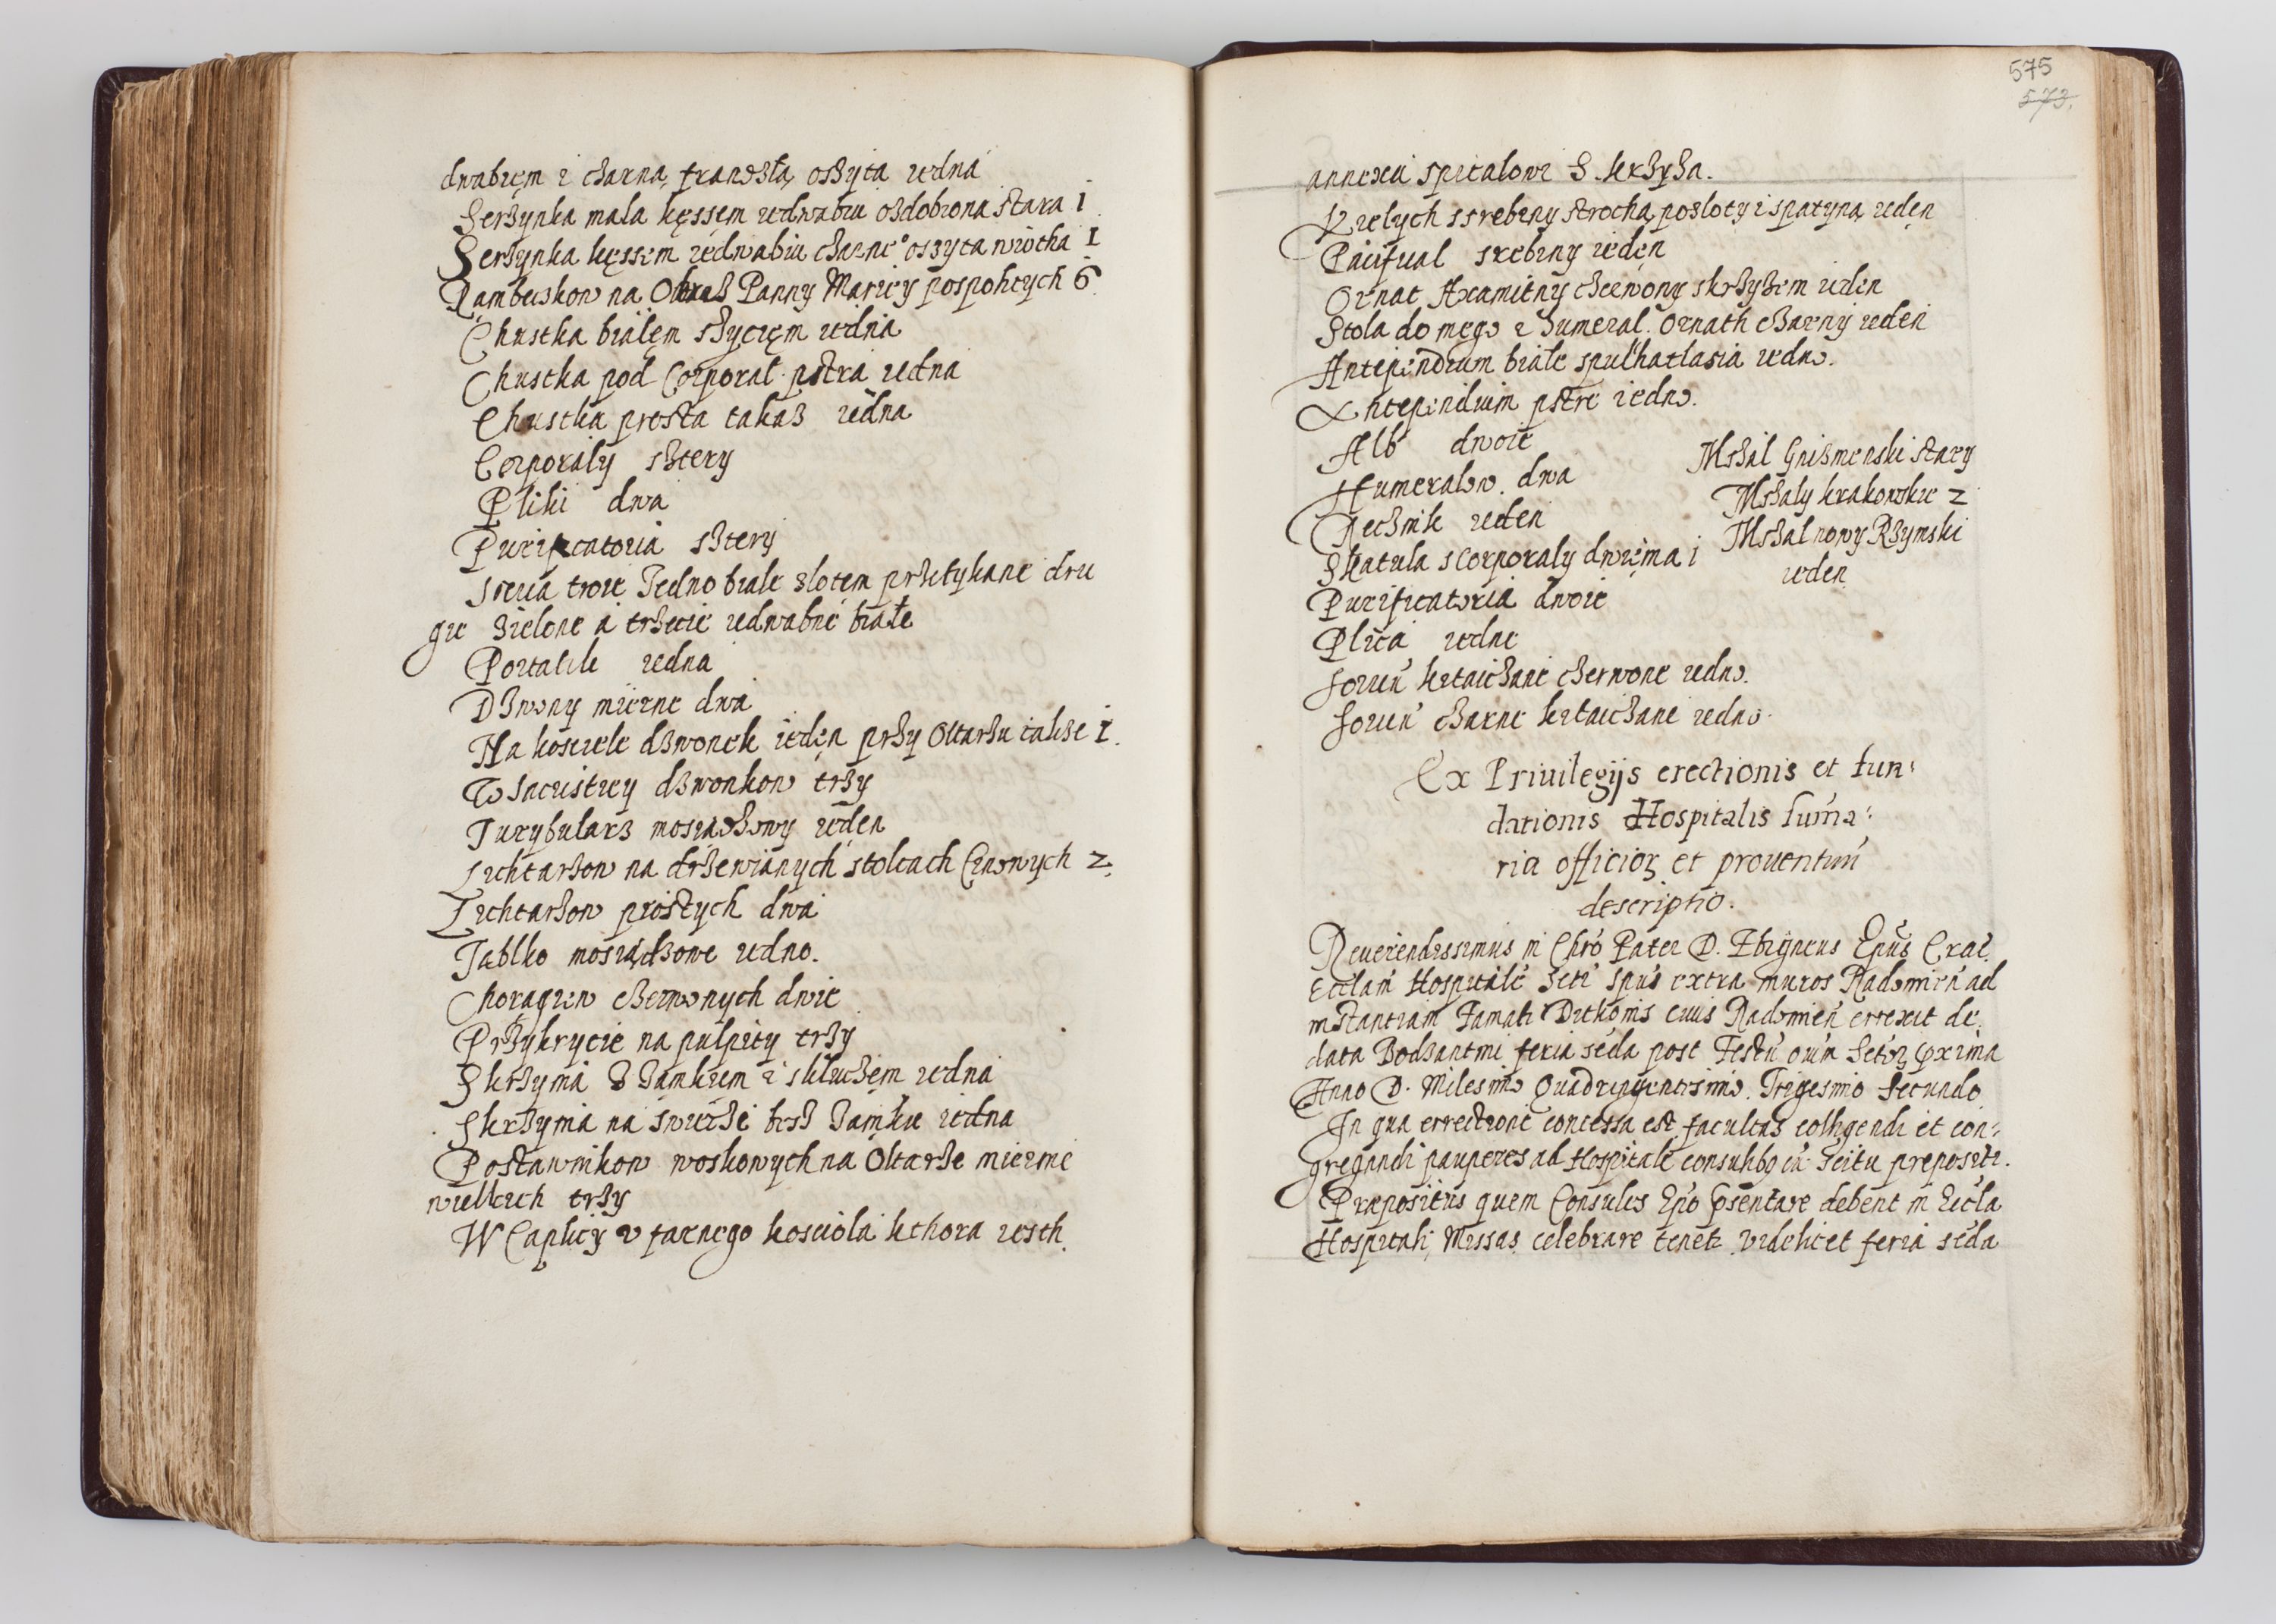 dwabięm i czarną frandzlą oszyta iedna
Serzynka mała kęssem iedwabiu ozdobiona stara 1
Serzynka kęssem iedwabiu czarne° oszyta wiotha 1
Rambuskow na Obraz Panny Mariey pospolitych 6
Chustka białem szyciem iedna
Chustka pod Corporal pstra iedna
Chustka prosta takaz iedna
Corporaly sztery
Pliki dwa
Purificatoria sztery
troie Jedno białe złotem przetykane dru
gie zielone a trzecie iedwabne białe
Portatile iedna
Dzwony mierne dwa
Na kosciele dzwonek ieden przy Ołtarzu takze 1.
W Sacristiey dzwonkow trzy
Turybularz mosiądzowy ieden
Lichtarzow na drzewianych stolcach Cinowych 2.
Lichtarzow prostych dwa
Jabłko mosiądzowe iedno.
Choragiew czerwonych dwie
Przykrycie na pulpity trzy
Skrzynia z zamkiem i skluczem iedna
Skrzynia na swieczki bez zamku iedna
Postawnikow woskowych na Ołtarze miernie
wielkich trzy
W Caplicy v farnego kosciola kthora iesth
575
573.
annexu szpitalowi S. krzyża.
Kielych ssrebrny strochą pozłoty i spatyną ieden
Pacifical srebrny ieden
Ornat Axamitny czerwony skrzyzem ieden
Stola do niego i humeral. Ornath czarny ieden
Antependium białe spułhatlasia iedno.
Antependium pstre iedno.
Alb dwoie
Humeralow dwa
Recznik ieden
Skatula scorporaly dwiema 1
Purificatoria dwoie
Plica iedne
foruń kitaiczane czerwone iedno.
foruń czarne kitaiczane iedno.
Mszal Gnizmenski stary
Mszaly krakowskie 2
Mszal nowy Rzymski
ieden
Ex Priuilegijs erectionis et fun:
dationis Hospitalis Suma:
ria officioꝝ et prouentuū
descriptio.
Reuerendissimus in Chrō Pater D. Zbigneus Epūs Crac̄.
Ecclām Hospitalē Scti Spūs extra muros Radomień ad
instantiam Famati Dithonis ciuis Radomień errexit de
data Bodzantini feria sc̄da post Festū oīum Sctoꝝ ꝓxima
Anno D. Milesimo Quadringentesimo Trigesimo Secundo
In qua errectione concessa est facultas colligendi et con:
gregandi pauperes ad Hospitale consulibꝯ cū scitu prepositi.
Præpositus quem Consules Epō ꝓsentare debent in Eccla
Hospitali, Missas celebrare tenet videlicet feria sc̄da